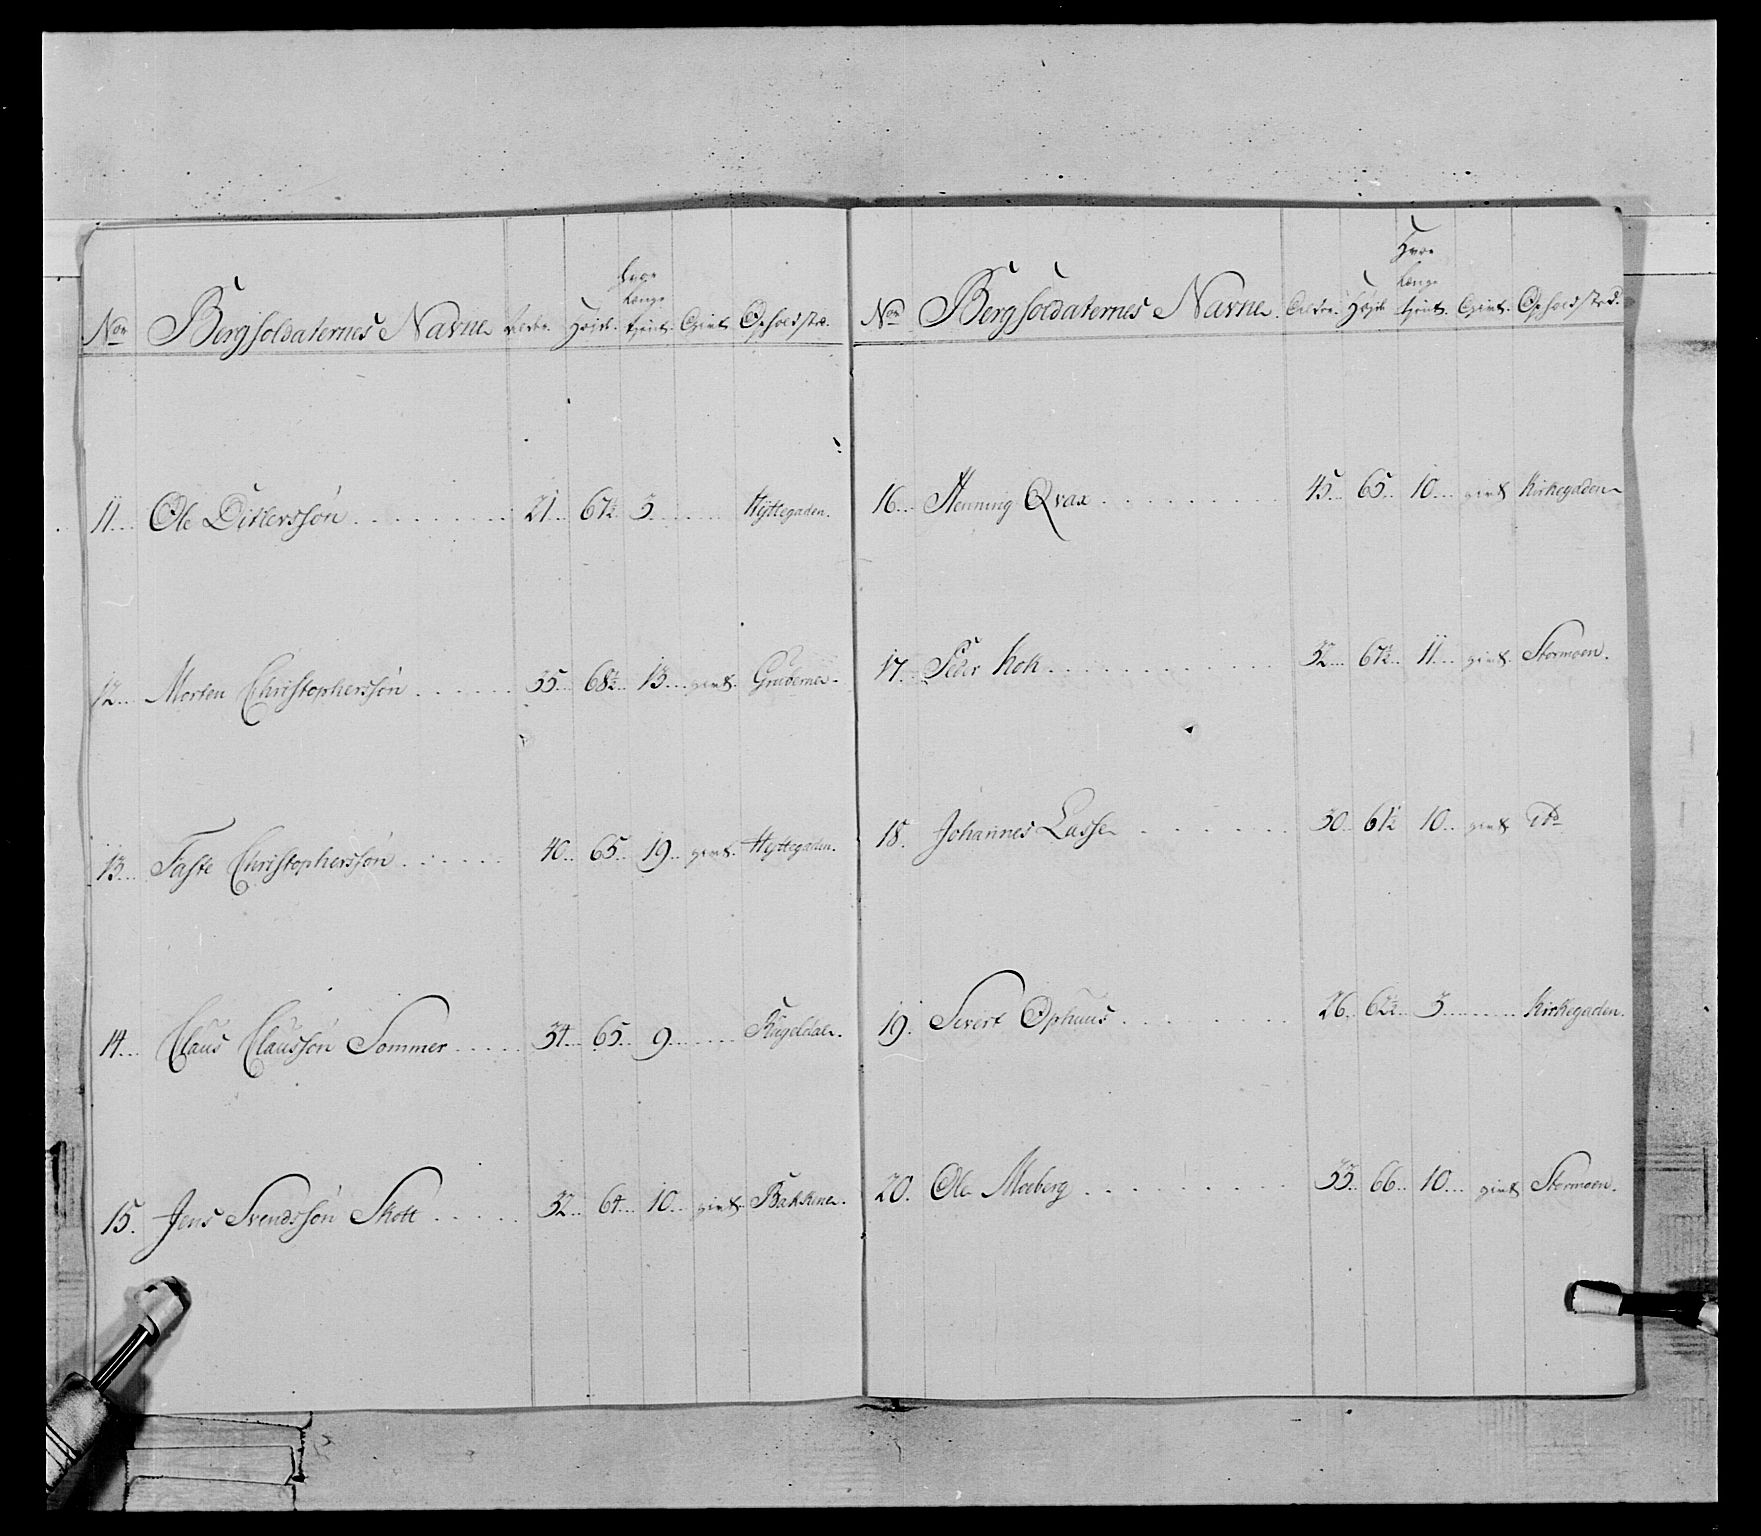 Nor Bergsoldaternes Navne Alder. Høide. Hvor Længe tjent. Givt. Opholdsted.
11... Ole Ditlerssøn........ 21... 67½ 3....... Hÿttegaden.
12... Morten Christopherssøn...... 35... 68½.. 13... givt. Gruderne.
13... Faste Christopherssøn...... 40.. 65.. 19.. givt. Hyttegaden.
14... Claus Claussøn Sommer..... 34... 65... 9...... Kugeldal.
15. Jens Svendssøn Skott..... 32... 64.. 10.. givt. Bakkene.
Nor Bergsoldaternes Navne. Alder. Høide Hvor Længe tjent. Givt. Opholdsted.
16... Henning Qvax........ 45... 65.. 10... givt Kirkegaden
17.. Peder Kok............ 32.... 67½.. 11... givt. Stormoen.
18. Johannes Lasse...... 30.. 61½ 10... givt Do
19. Sivert Ophuus........ 26. 62½.. 3....... Kirkegaden.
20. Ole Moeberg......... 33.. 66.. 10... givt Stormoen.